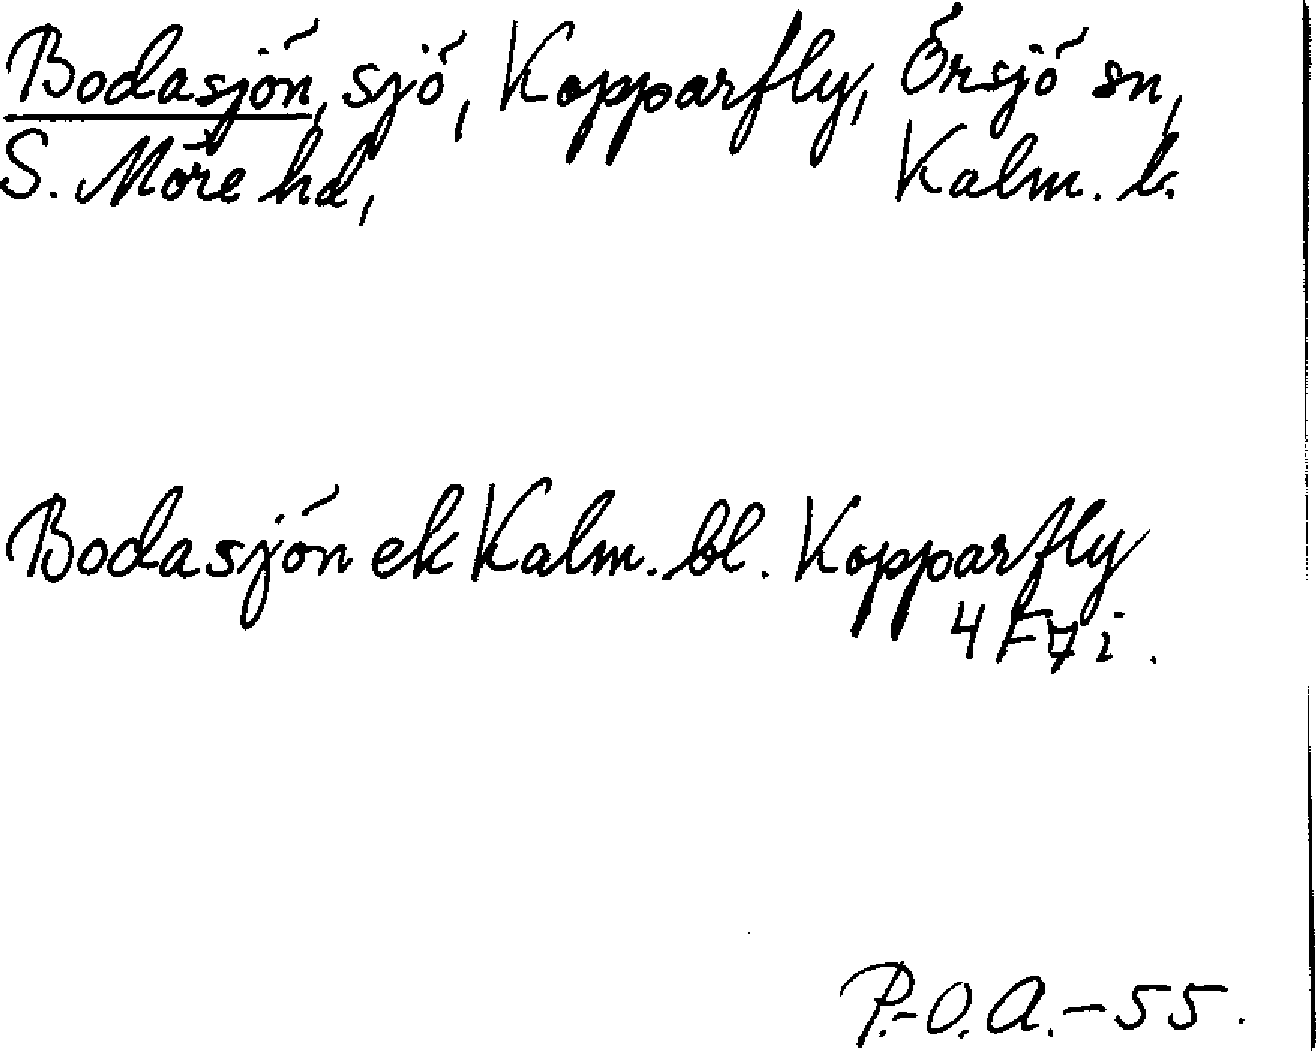 Bodasjön, sjö, Kopparfly, Örsjö sn,
S. Möre hd, Kalm. l.
Bodasjön ek Kalm. bl. Kopparfly
4 F 7 i.
P.-O. A. - 55.